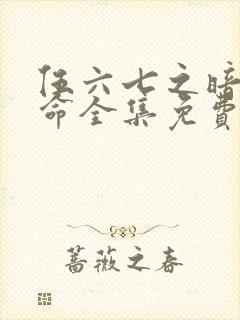 伍六七之暗
命全集免費
蔷薇之春